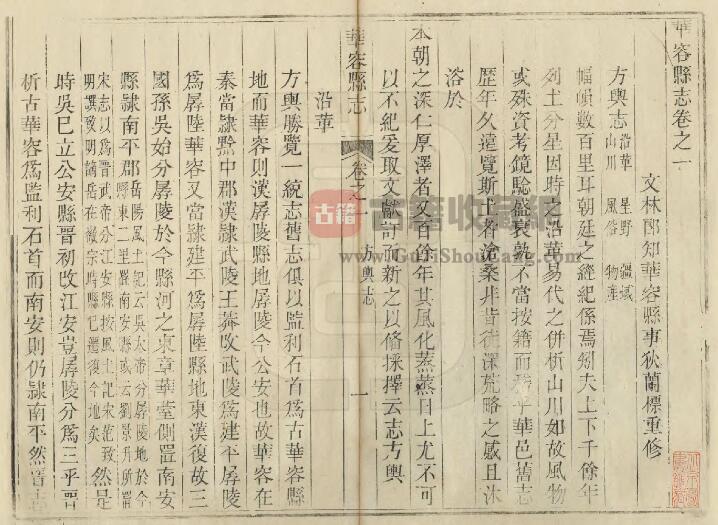 華容縣志卷之一
文林郎知華容縣事狄蘭標重修
方輿志 沿革 星野 疆域
山川 風俗 物產
幅幀數百里耳朝廷之經紀係焉矧夫上下千餘年
列土分星因時之沿革易代之併析山川如故風物
或殊資考鏡驗盛衰孰不當按籍而 乎華邑舊志
歷年久遠覽斯土者滄桑非昔徃深荒略之感且沐
浴於
本朝之深仁厚澤者又百餘年其風化蒸蒸日上尤不可
以不紀爰取文獻訂而新之以俻採擇云志方輿
沿革
方輿勝覽一統志舊志俱以監利石首爲古華容縣
地而華容則漢孱陵地孱陵今公安也故華容在
秦當隸黔中郡漢隸武陵王莽改武陵爲建平孱陵
爲孱陸華容又當隸建平爲孱陸縣地東漢復故三
國孫吳始分孱陵於今縣河之東章華臺側置南安
縣隸南平郡 岳陽風土記云吳大帝分孱陵地於今
縣東二里置南安縣或云劉景升所置
宋志以爲晉武帝分江安縣按風土記宋范致
明謨致明謫岳在徽宗時縣已還復今地矣 然是
時吳已立公安縣晉初改江安豈孱陵分爲三乎晉
析古華容爲監利石首而南安則仍隸南平然晉書
華容縣志
卷之一 方輿志
一
古籍
古籍收藏網
www.GuJiShouCang.com